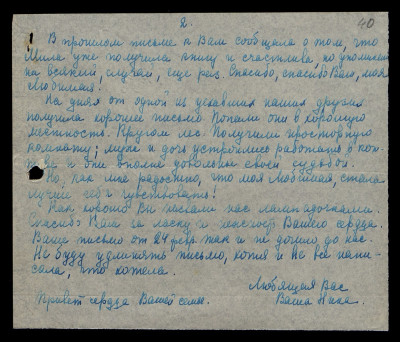 2.
40
В прошлом письме к Вам сообщала о том, что
Мила уже получила книгу и счастлива, но упомянем
на всякий случай, еще раз. Спасибо, спасибо Вам, моя
Любимая!
На днях от одной из уехавших наших друзей
получила хорошее письмо. Попали они в хорошую
местность. Кругом лес. Получили просторную
комнату; муж и дочь устроились работать в
и они вполне довольны своей судьбой.
Но, как мне радостно, что моя Любимая, стала
лучше себя чувствовать!
Как хорошо Вы назвали нас лампадочками.
Спасибо Вам за ласку и нежность Вашего сердца.
Ваше письмо от 24 февр. так и не дошло до нас.
Не буду удлинять письмо, хотя и не все напи-
сала, что хотела.
Любящая Вас
Привет сердца Вашей семье.
Ваша Ника.